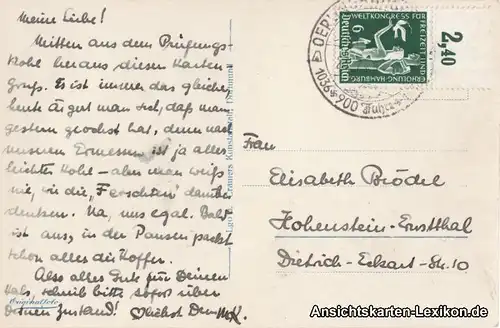 Meine Liebe!
Mitten aus dem Prüfungs-
kohl heraus diesen Karten-
gruß. Es ist immer das gleiche,
heute ärgert man sich, daß man
gestern geochst hat, denn nach
unserem Ermessen ist ja alles
leichter Kohl - aber man weiß
nie, wie die „Forschten" darüber
denken. Na, uns egal. Bald
ist aus, in der Pausen packt
schon alles die Koffer.
Also alles Gute für Deinen
Hals, schreib bitte sofort über
Deinen Zustand! Herzlichst Dein
Originalfoto
Trauers Kunstanstalt, Dortmund
WELTKONGRESS FÜR FREIZEIT UND
ERHOLUNG HAMBURG
Deutsches Reich
6
2,40
Frau
Elisabeth Brödel
Hohenstein-Ernstthal
Dietrich-Eckart-Str. 10
Ansichtskarten-Lexikon.de